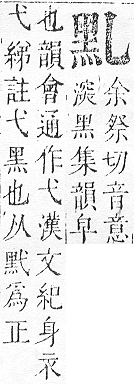 余祭切音意
淡黑集韻皁
也韻會通作弋漢文紀身衣
弋綈註弋黑也从默為正